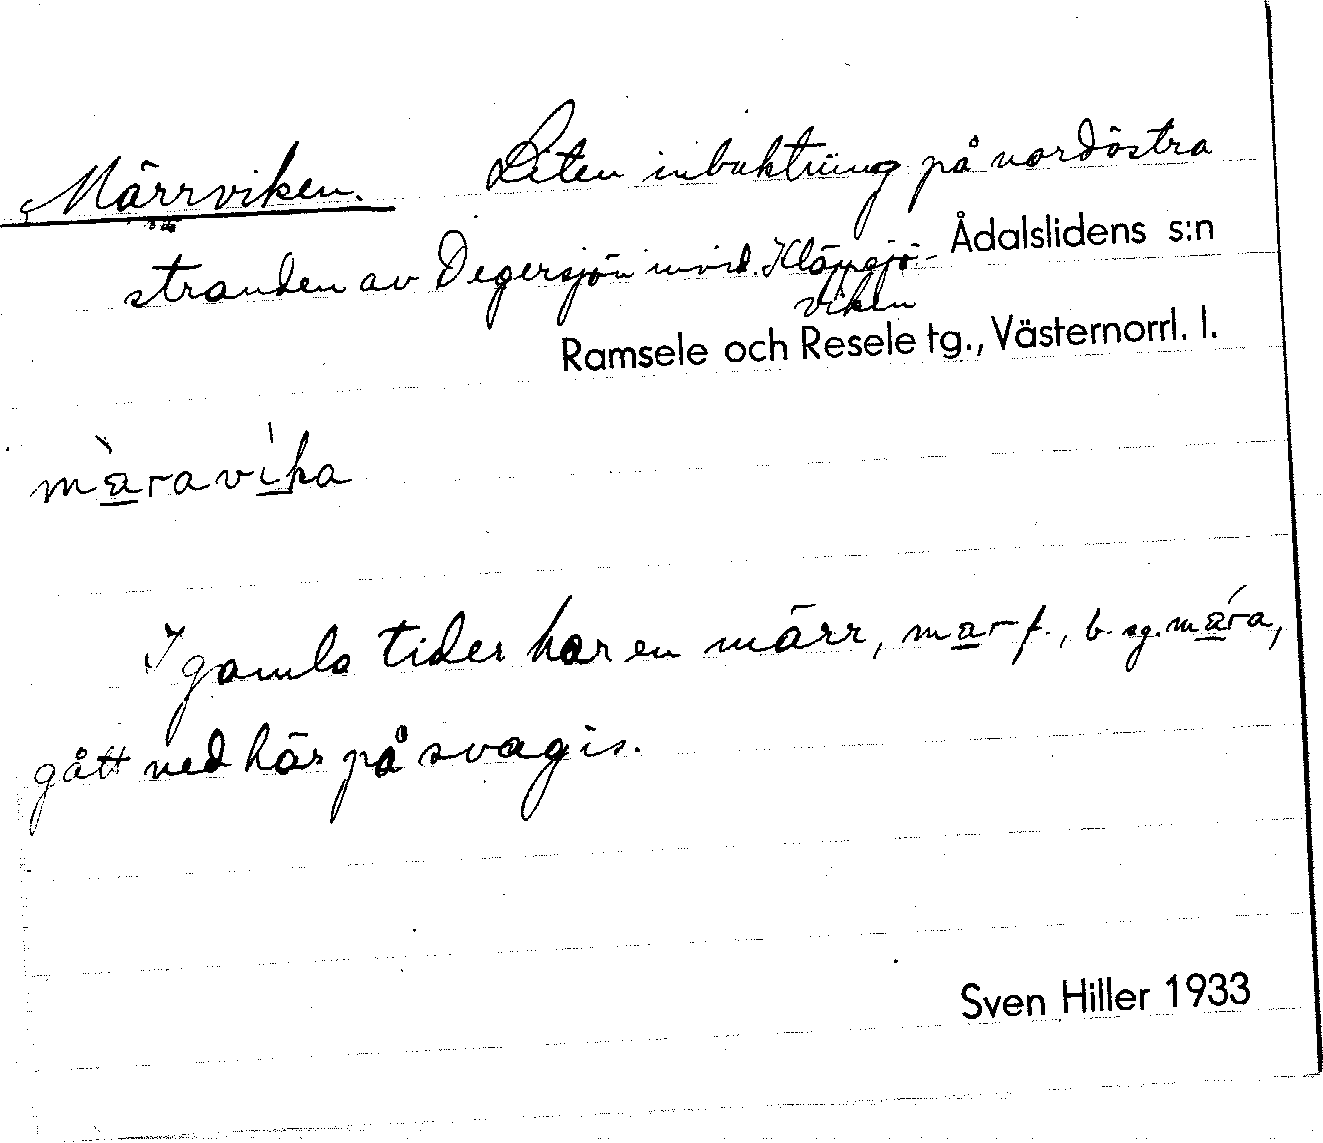 Märrviken. Liten inbuktning på nordöstra
stranden av Degersjön invid Klöpsjö-
viken
Ådalslidens s:n
Ramsele och Resele tg., Västernorrl. l.
màravíka
I gamla tider har en märr, mar f., b. sg. mára,
gått ned här på svag is.
Sven Hiller 1933